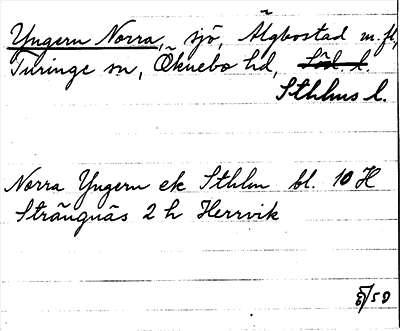 Yngern Norra, sjö, Älgbostad m.fl,
Turinge sn, Öknebo hd, Söd. l.
Sthlms l.
Norra Yngern ek Sthlm bl. 10 H
Strängnäs 2 h Herrvik
/59